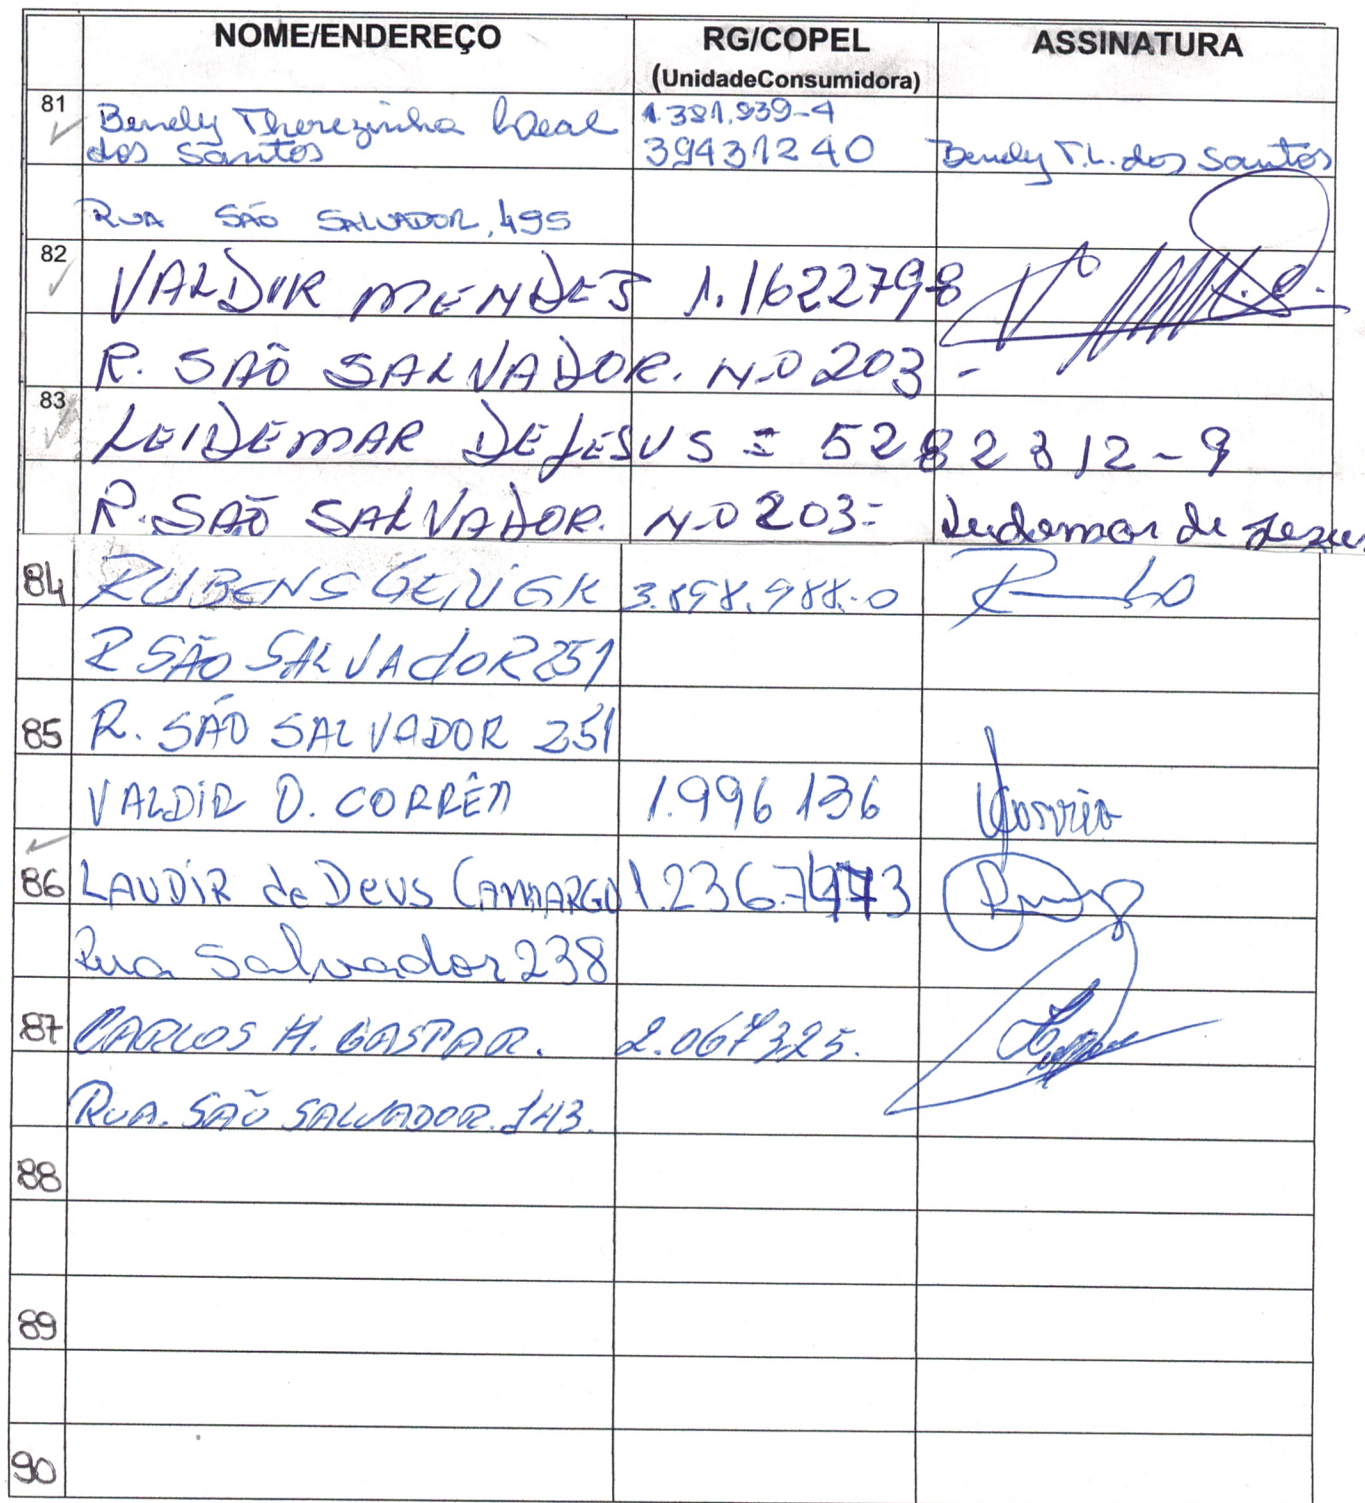 NOME/ENDEREÇO RG/COPEL ASSINATURA
(UnidadeConsumidora)
81 Benely Therezinha Leal 1.381.939-4
dos Santos 39431240 Benely T.L. dos Santos
RUA SÃO SALVADOR, 495
82 VALDIR MENDES 1.1622798
R. SAÕ SALVADOR. N.O 203 -
83 LEIDEMAR DE JESUS = 5282312-9
R. SAÕ SALVADOR. N.O 203= Leidemar de Jesus
84 RUBENS GERIGK 3.898.988-0
R SÃO SALVADOR 251
85 R. SÃO SALVADOR 251
VALDIR O. CORRÊA 1.996 136 VCorrêa
86 LAUDIR de DEUS CAMARGO 1.2367473
Rua Salvador 238
87 CARLOS H. GASPAR. 2.067325.
RUA. SÃO SALVADOR. 143.
88
89
90